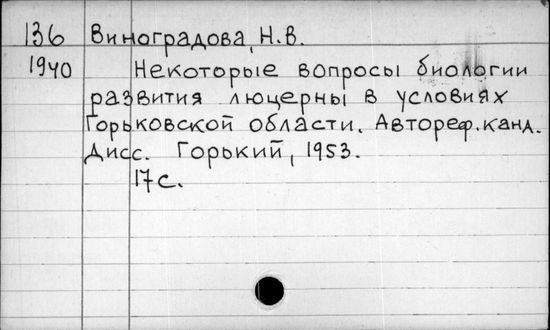 136 Виноградова, Н.В.
1940 Некоторые вопросы биологии
развития люцерны в условиях
Горьковской области. Автореф. канд.
Дисс. Горький, 1953.
17 с.